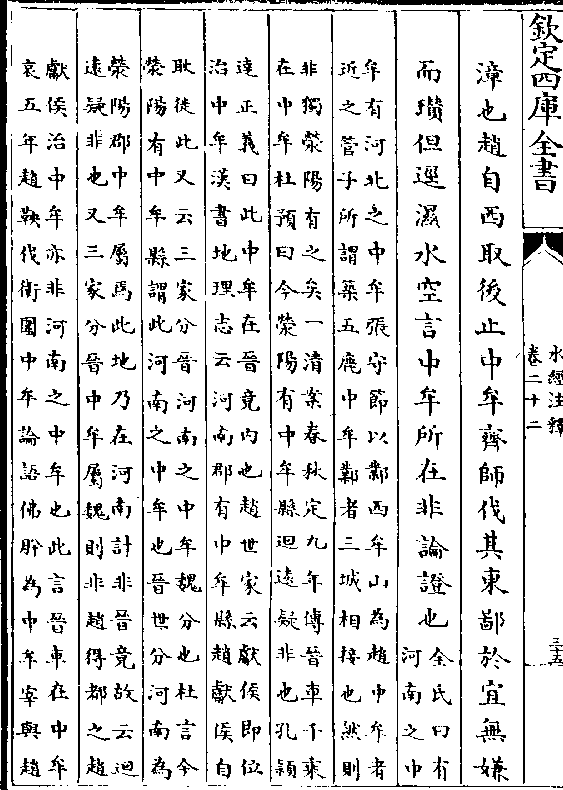 欽定四庫全書
水經注釋
卷二十二
三十五
漳也趙自西取後止中牟齊師伐其東鄙於宜無嫌
而瓚但遥濕水空言中牟所在非論證也
全氏曰有
河南之中
牟有河北之中牟張守節以鄴西牟山為趙中牟者
近之管子所謂築五鹿中牟鄴者三城相接也然則
非獨滎陽有之矣一清案春秋定九年傳晉車千乘
在中牟杜預曰今滎陽有中牟縣迴遠疑非也孔穎
達正義曰此中牟在晉竟內也趙世家云獻侯即位
治中牟漢書地理志云河南郡有中牟縣趙獻侯自
耿徙此又云三家分晉河南之中牟魏分也杜言今
滎陽有中牟縣謂此河南之中牟也晉世分河南為
滎陽郡中牟屬焉此地乃在河南計非晉竟故云迴
遠疑非也又三家分晉中牟屬魏則非趙得都之趙
獻侯治中牟亦非河南之中牟也此言晉車在中牟
哀五年趙鞅伐衛圍中牟論語佛肸為中牟宰與趙